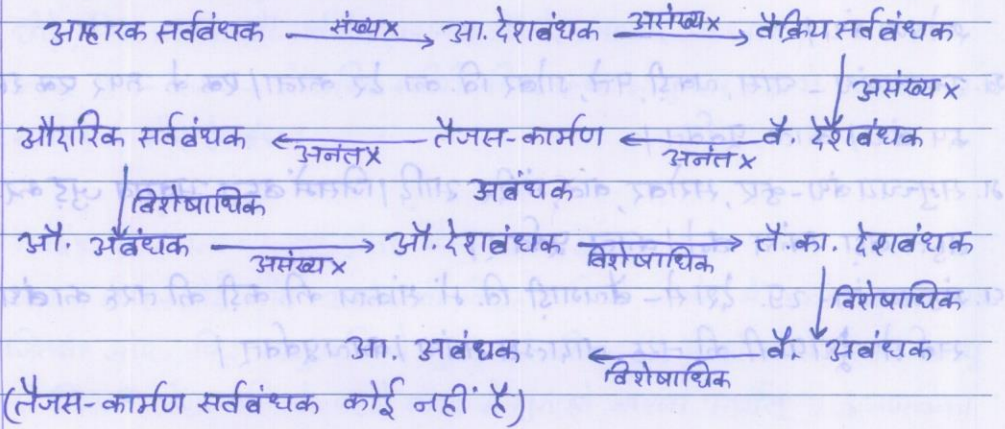 आहारक सर्वबंधक —संख्य x→ आ. देशबंधक —असंख्य x→ वैक्रिय सर्वबंधक
↓ असंख्य x
औदारिक सर्वबंधक ←अनंत x— तैजस-कार्मण ←अनंत x— वै. देशबंधक
अबंधक
↓ विशेषाधिक
औ. अबंधक —असंख्य x→ औ. देशबंधक —विशेषाधिक→ तै. का. देशबंधक
↓ विशेषाधिक
आ. अबंधक ←विशेषाधिक— वै. अबंधक
(तैजस-कार्मण सर्वबंधक कोई नहीं है)